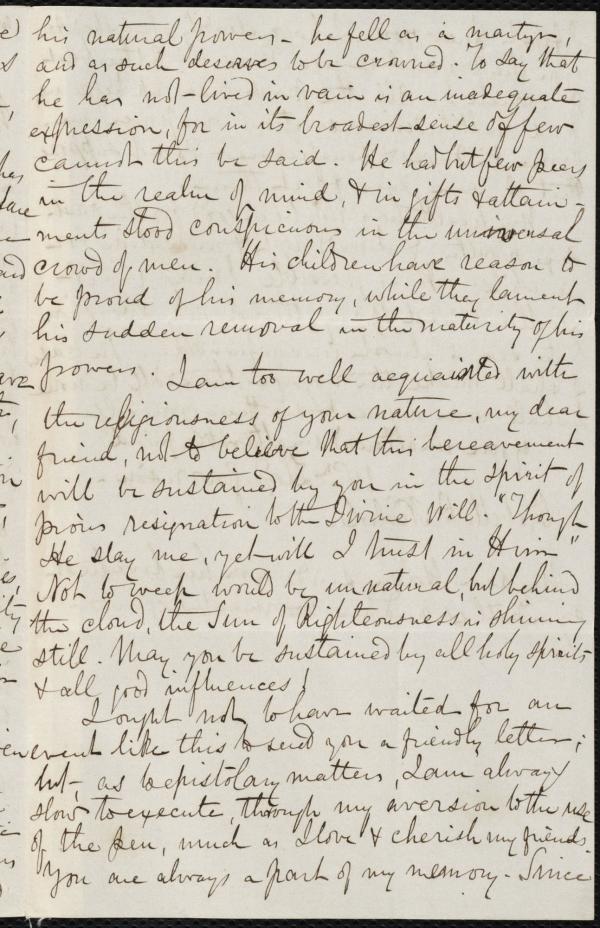 his natural powers - he fell as a martyr,
and as such deserves to be crowned. To say that
he has not lived in vain is an inadequate
expression, for in its broadest sense of few
cannot this be said. He had but few peers
in the realm of mind, & in gifts & attain-
ments stood conspicuous in the universal
crowd of men. His children have reason to
be proud of his memory, while they lament
his sudden removal in the maturity of his
powers. I am too well acquainted with
the religiousness of your nature, my dear
friend, not to believe that this bereavement
will be sustained by you in the spirit of
pious resignation to the Divine Will. "Though
He slay me, yet will I trust in Him"
Not to weep would be unnatural, but behind
the cloud, the Sun of Righteousness is shining
still. May you be sustained by all holy spirits
& all good influences!
I ought not to have waited for an
event like this to send you a friendly letter;
but, as to epistolary matters, I am always
slow to execute, through my aversion to the use
of the pen, much as I love & cherish my friends.
You are always a part of my memory. Since